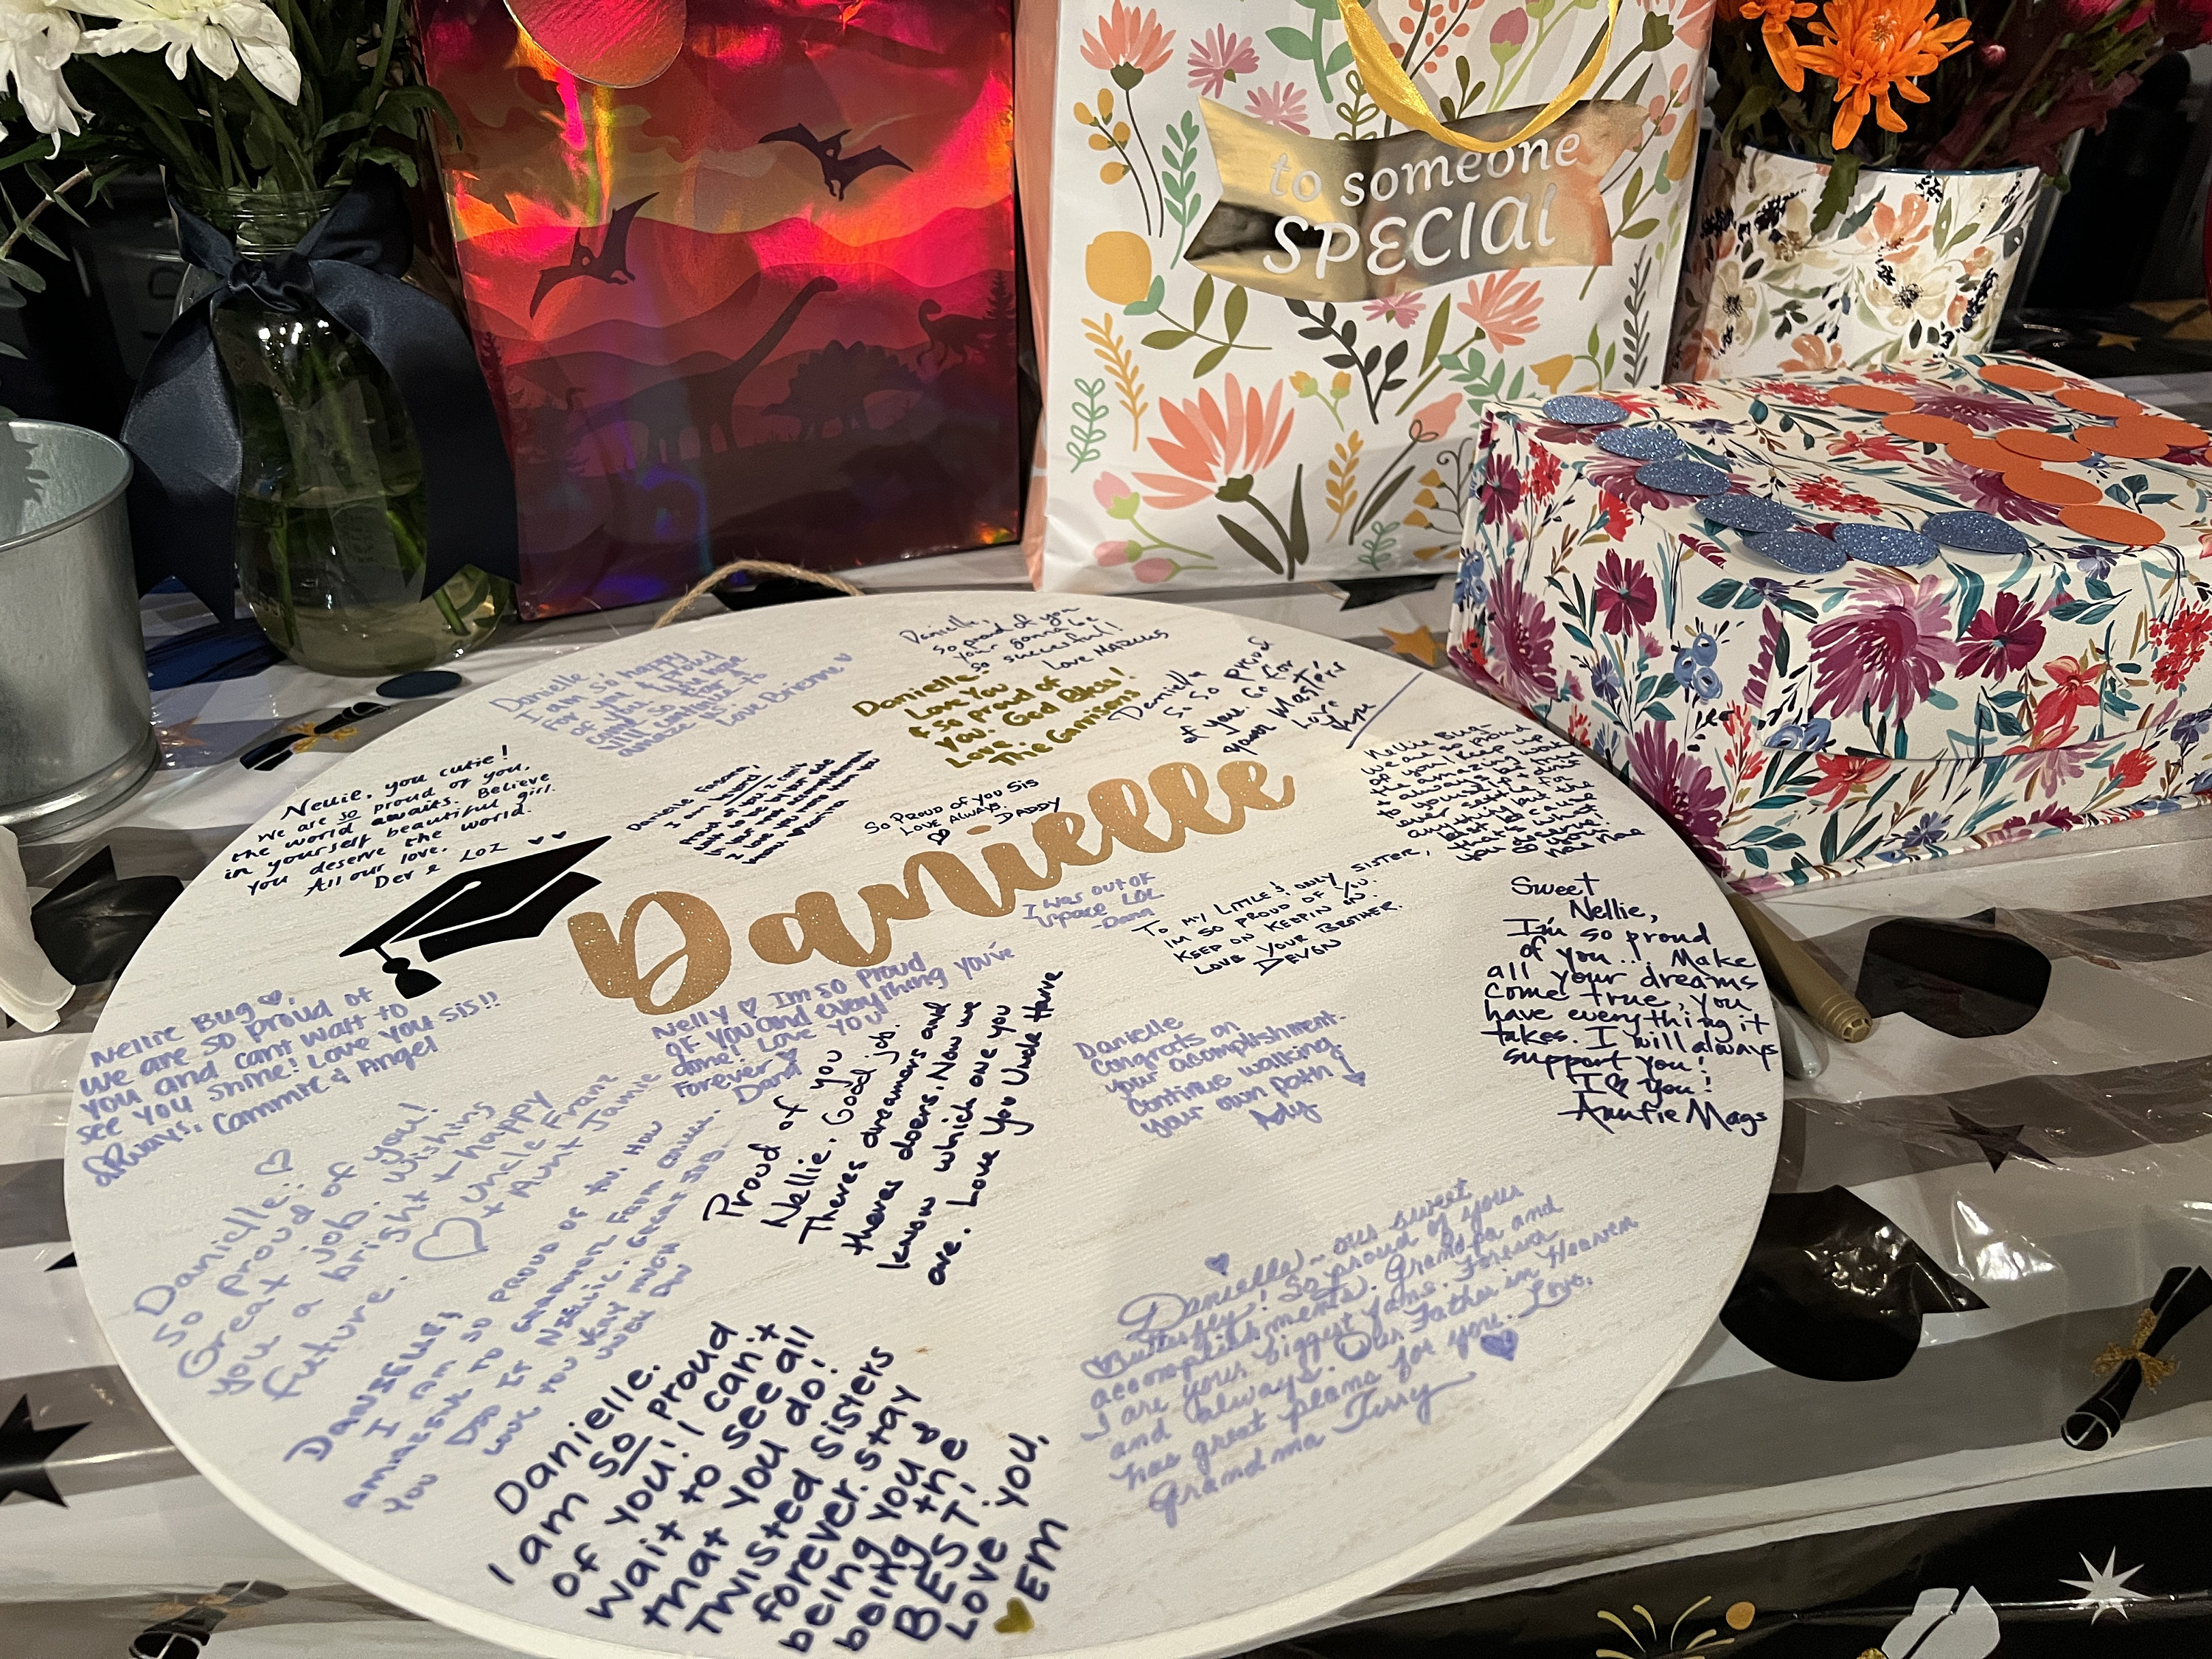 to someone
SPECIAL
Danielle,
so proud of you
your gonna be
so successful!
Love MARCUS
Danielle,
I am so happy
for you & proud
of you. You have
come so far &
will continue to
amaze us.
Love Brienne
Danielle:
Love You
& so proud of
you. God Bless!
Love,
The Garrisons
Danielle
So So Proud
of you. Go for
your Masters
Love
Nellie, you cutie!
We are so proud of you,
the world awaits. Believe
in yourself beautiful girl.
You deserve the world.
All our love,
Dev & Loz
Danielle
I am
proud of you. I can't
SO PROUD OF YOU SIS
LOVE ALWAYS,
DADDY
Nellie Bug-
We are so proud
of you! Keep up
the amazing work
& always be true
to yourself & don't
ever settle for
anything but the
best because
that's what
you deserve!
Danielle
I was out of
space LOL
-Dana
TO MY LITTLE & ONLY SISTER,
IM SO PROUD OF YOU.
KEEP ON KEEPIN ON.
LOVE YOUR BROTHER.
DEVON
Sweet
Nellie,
I'm so proud
of you... Make
all your dreams
come true, you
have everything it
takes. I will always
support you!
I ♡ You!
Auntie Mags
Nellie Bug ♡,
we are so proud of
you and cant wait to
see you shine! Love you sis!!
Always, Cammie & Angel
Nelly ♡ Im so proud
of you and everything you've
done! Love you
Forever ♡
Dana
Proud of you
Nellie. Good job.
Theres dreamers and
theres doers. Now we
know which one you
are. Love You Uncle Harve
Danielle
Congrats on
your acomplishment.
Continue walking
your own path!
Ady
Danielle..
So proud of you!
Great job. wishing
you a bright + happy
future. ♡ Uncle Franz
+ Aunt Jamie
DANIELLE,
I AM SO PROUD OF YOU. HOW
AMAZING TO GRADUATE FROM
YOU DID IT NELLIE. GREAT JOB.
LOVE YOU VERY MUCH
Danielle.
I am so proud
of you! I can't
wait to see all
that you do!
Twisted sisters
forever. Stay
being you &
being the
BEST!
Love you,
♥ EM
Danielle~ our sweet
♡ Butterfly! So proud of your
accomplishments. Grandpa and
I are your biggest fans. Forever
and always. Our Father in Heaven
has great plans for you. Love,
Grandma Terry